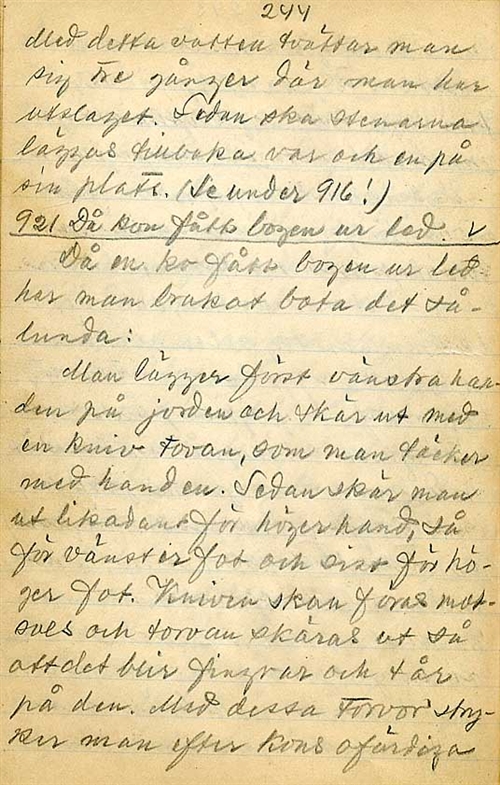 244
Med detta vatten tvättar man
sig tre gånger där man har
utslaget. Sedan ska stenarna
läggas tillbaka var och en på
sin plats. (Se under 916!)
921 Då kon fått bogen ur led. v
Då en ko fått bogen ur led
har man brukat bota det så-
lunda:
Man lägger först vänstra han-
den på jorden och skär ut med
en kniv tovan, som man täcker
med handen. Sedan skär man
ut likadant för höger hand, så
för vänster fot och sist för hö-
ger fot. Kniven skan föras mot-
soles och torvan skäras ut så
att det blir fingrar och tår
på den. Med dessa torvor stry-
ker man efter kons ofärdiga